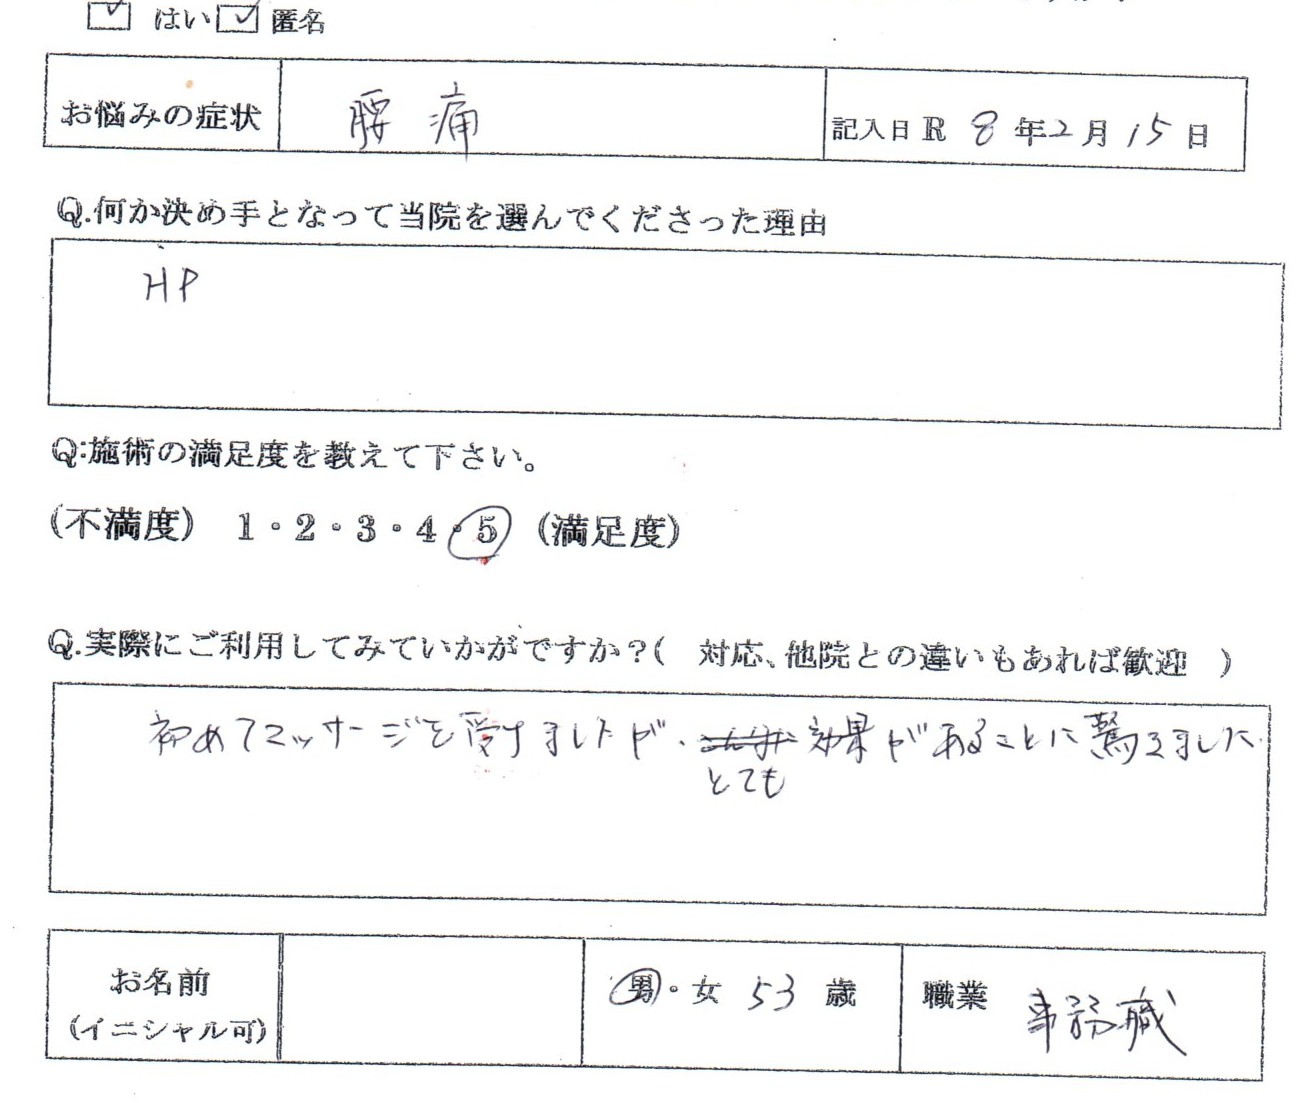 ☑ はい ☑ 匿名
お悩みの症状 腰痛 記入日 R 8 年 2 月 15 日
Q.何が決め手となって当院を選んでくださった理由
HP
Q:施術の満足度を教えて下さい。
(不満度) 1・2・3・4・5 (満足度)
Q.実際にご利用してみていかがですか?( 対応、他院との違いもあれば歓迎 )
初めてマッサージを受けましたが、効果があることに驚きました。
とても
お名前 男・女 53 歳 職業 事務職
(イニシャル可)